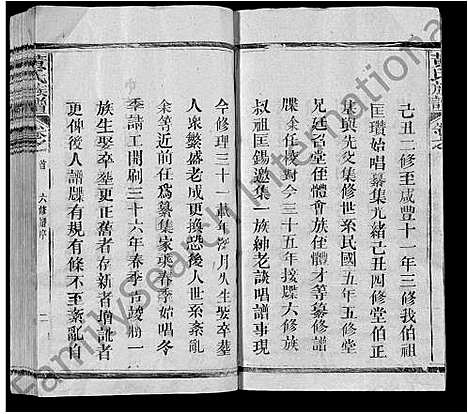 黃氏族譜
己丑二修至咸豐十一年三修我伯祖
匡瓚始唱纂集光緒己丑四修堂伯正
基與先父集修世系民國五年五修堂
兄廷名堂侄體會族侄體才等纂修譜
牒余任校對今三十五年找牒六修族
叔祖匡錫邀集一族紳老談唱譜事現
今修理三十一世年冷月久生娶卒塟
人衆繁盛老成更換恐後人世系紊亂
余等近前在為纂集家乘春季始唱冬
季請工開刷三十六年春季告竣將一
族生娶卒塟更正舊者存新者增訛者
更俾後人譜牒有規有條不至紊亂自
黃氏族譜
首
六修譜序
二
FamilySearch International